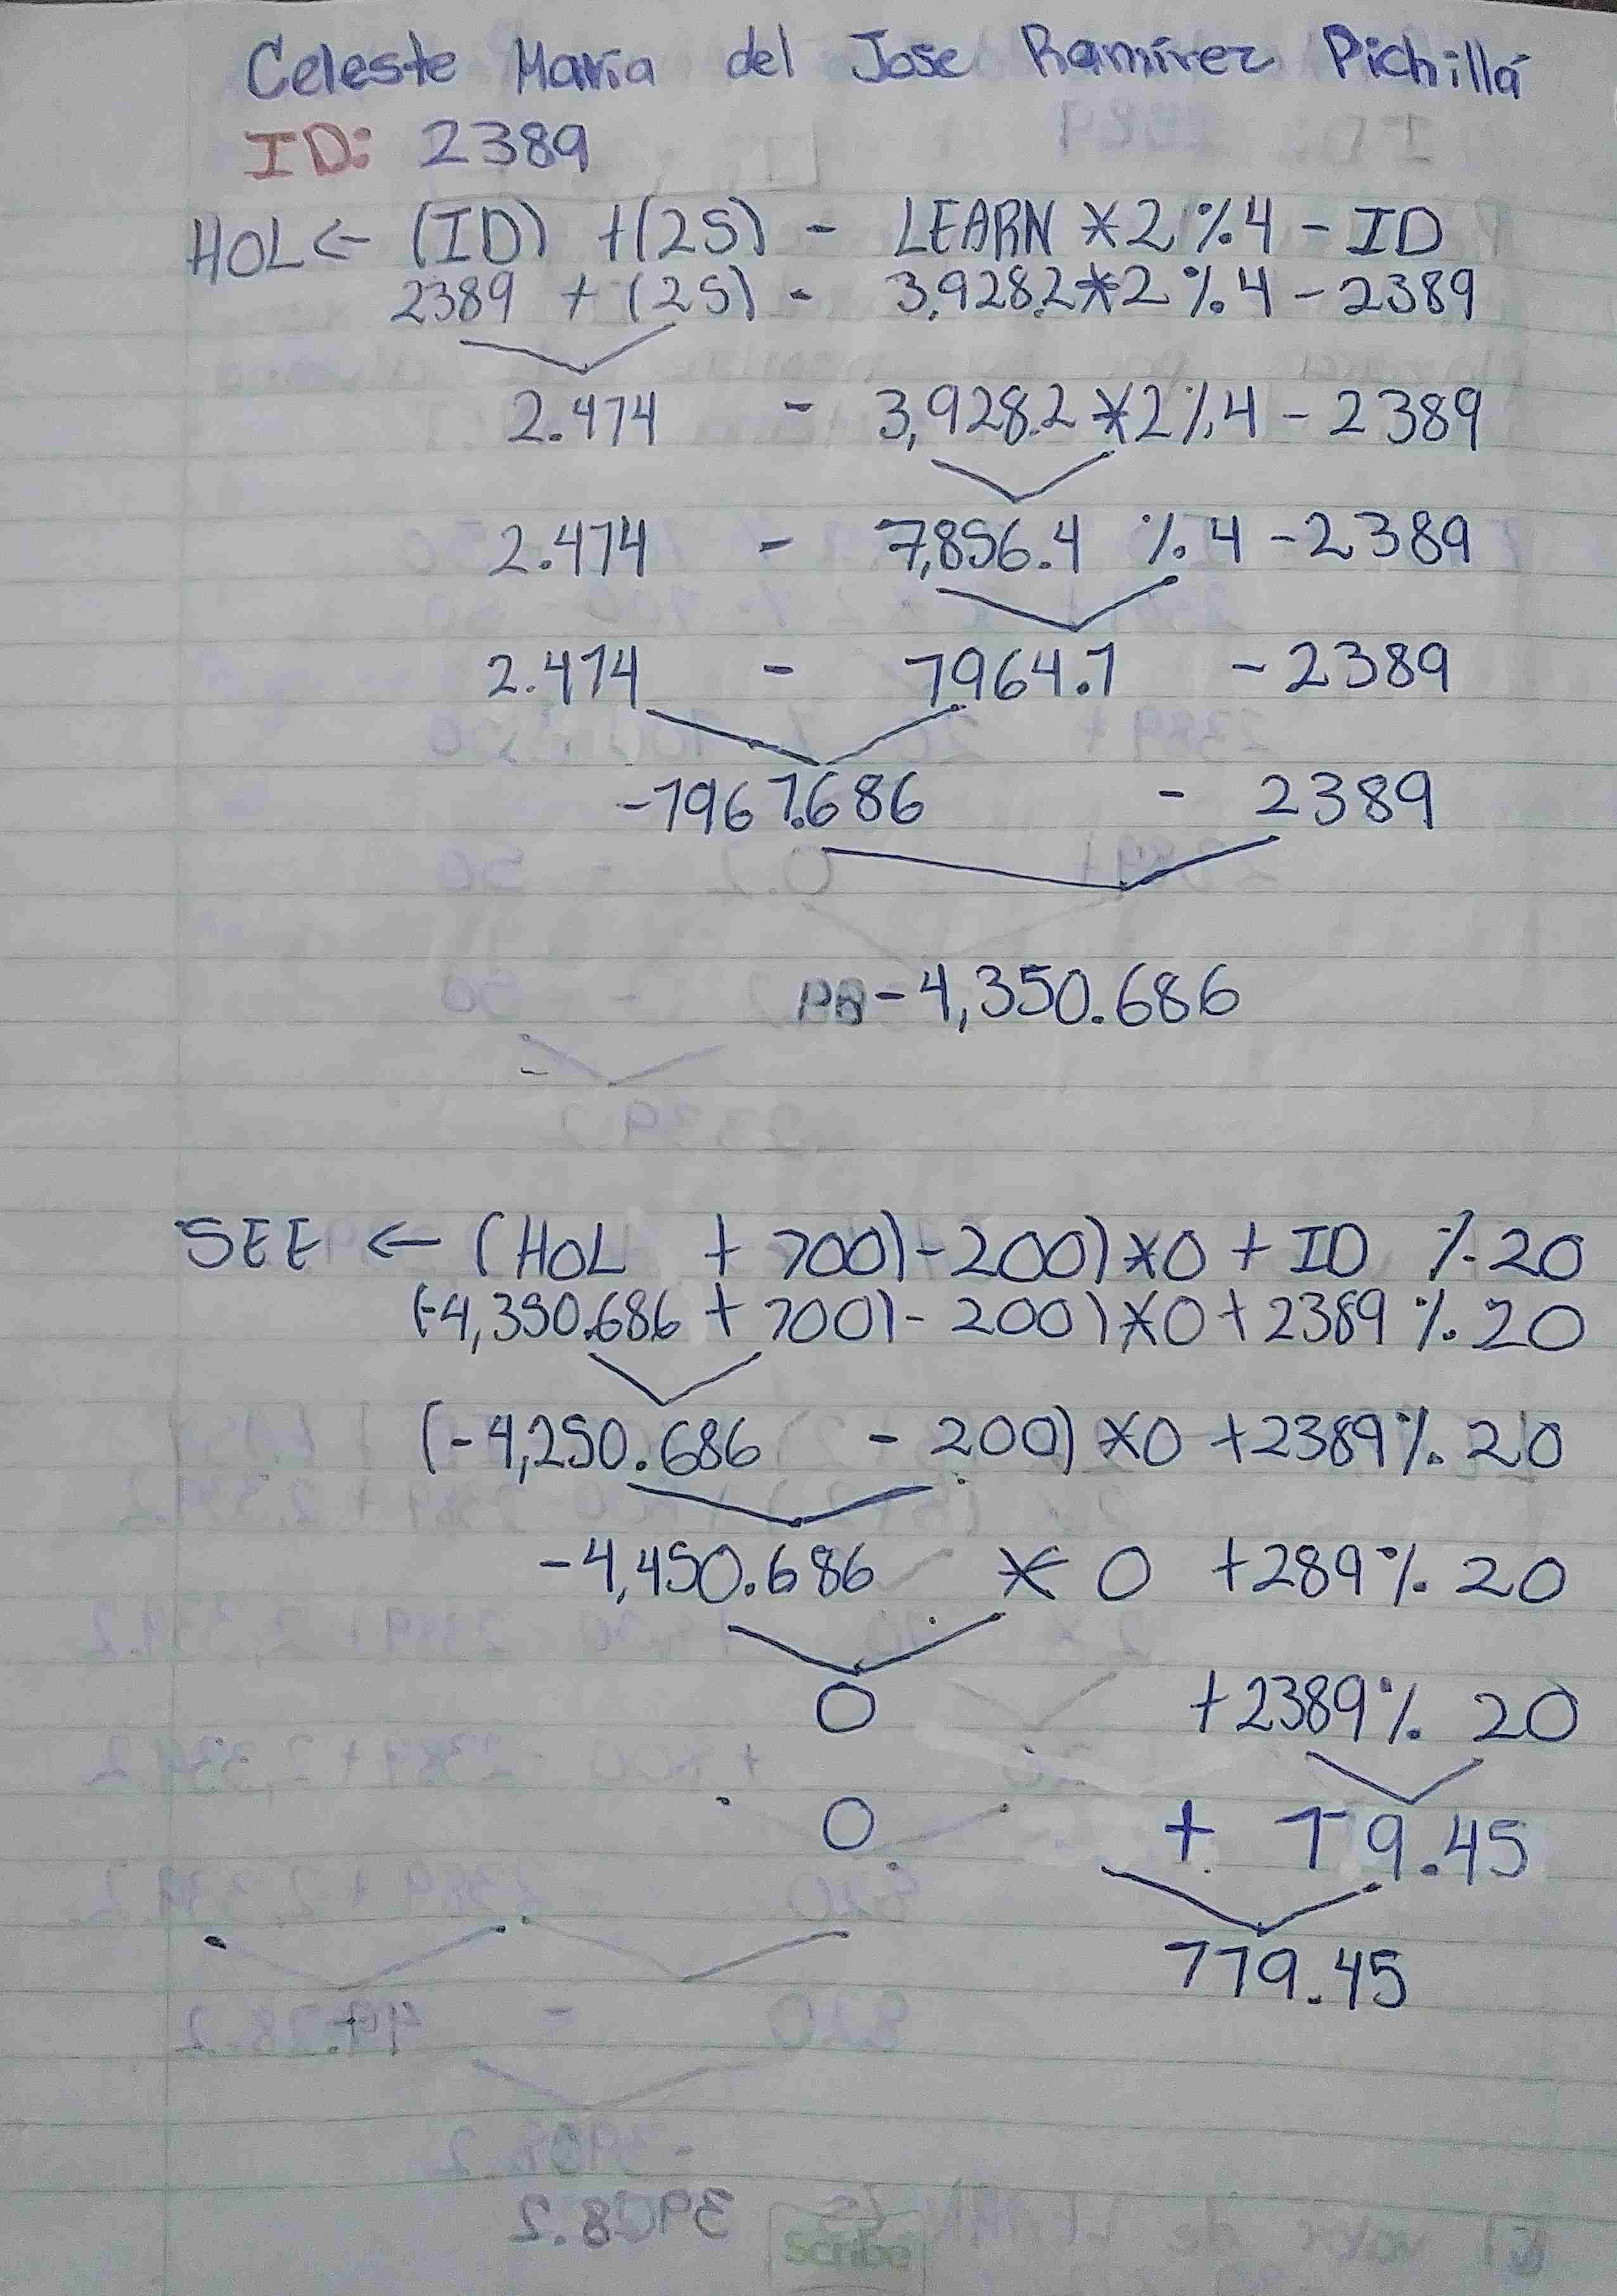 Celeste María del Jose Ramírez Pichillá
ID: 2389
HOL ← (ID) +(25) - LEARN *2 % 4 - ID
2389 + (25) - 3,928.2*2 % 4 - 2389
2.474 - 3,928.2 *2 % 4 - 2389
2.474 - 7,856.4 % 4 - 2389
2.474 - 1964.1 - 2389
-1961.686 - 2389
-4,350.686
SEE ← (HOL + 700) - 200) *0 + ID % 20
(-4,350.686 + 700) - 200) *0 + 2389 % 20
(-4,250.686 - 200) *0 +2389 % 20
-4,450.686 * 0 +289 % 20
0 +2389 % 20
0 + 119.45
119.45
scribe